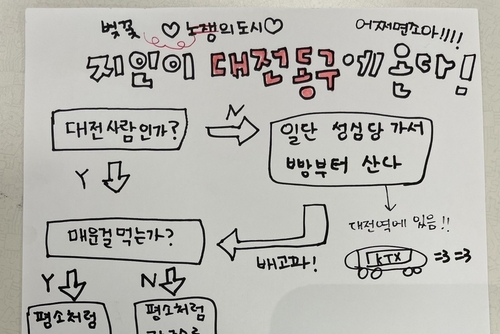 벚꽃 ♡ 노쟁의도시♡ 어쩌면조아!!!!
지인이 대전동구에 온다면
대전사람인가?
N
일단 성심당 가서
빵부터 산다
Y
대전역에 있음!!
매운걸먹는가?
배고파!
KTX =3 =3
Y
N
평소처럼
평소처럼